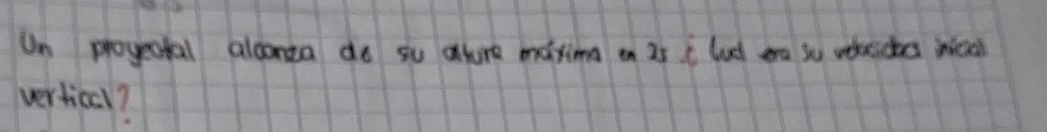 Un proyectal alcanza de su altura máxima en 2s ¿ Cual era su velocidad inicial
vertical?